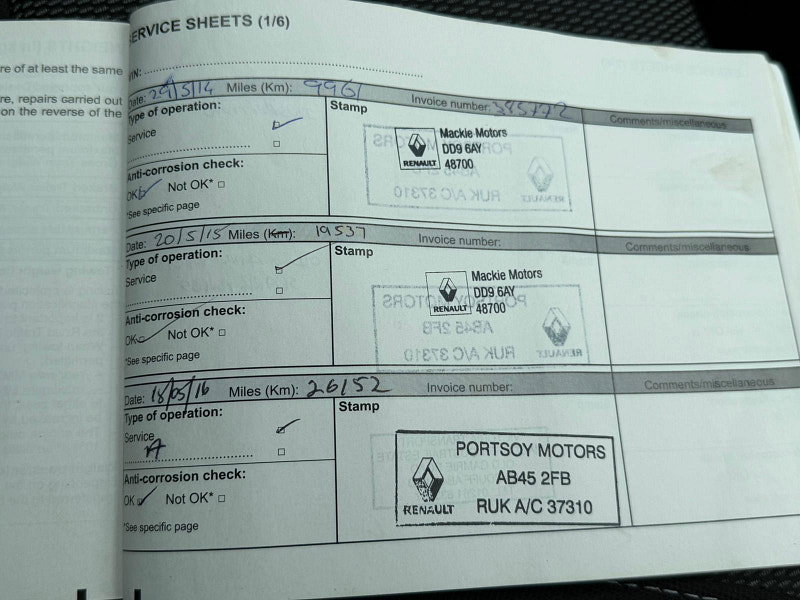 SERVICE SHEETS (1/6)
re of at least the same
re, repairs carried out
on the reverse of the
VIN:
Date: 29/5/14 Miles (Km): 9961 Invoice number: 385772 Comments/miscellaneous
Type of operation:
Service
Anti-corrosion check:
OK Not OK*
*See specific page
Stamp
RENAULT
Mackie Motors
DD9 6AY
48700
PORTSOY MOTORS
AB45 2FB
RUK A/C 37310
RENAULT
Date: 20/5/15 Miles (Km): 19537 Invoice number: Comments/miscellaneous
Type of operation:
Service
Anti-corrosion check:
OK Not OK*
*See specific page
Stamp
RENAULT
Mackie Motors
DD9 6AY
48700
PORTSOY MOTORS
AB45 2FB
RUK A/C 37310
RENAULT
Date: 18/05/16 Miles (Km): 26152 Invoice number: Comments/miscellaneous
Type of operation:
Service
A
Anti-corrosion check:
OK Not OK*
*See specific page
Stamp
RENAULT
PORTSOY MOTORS
AB45 2FB
RUK A/C 37310